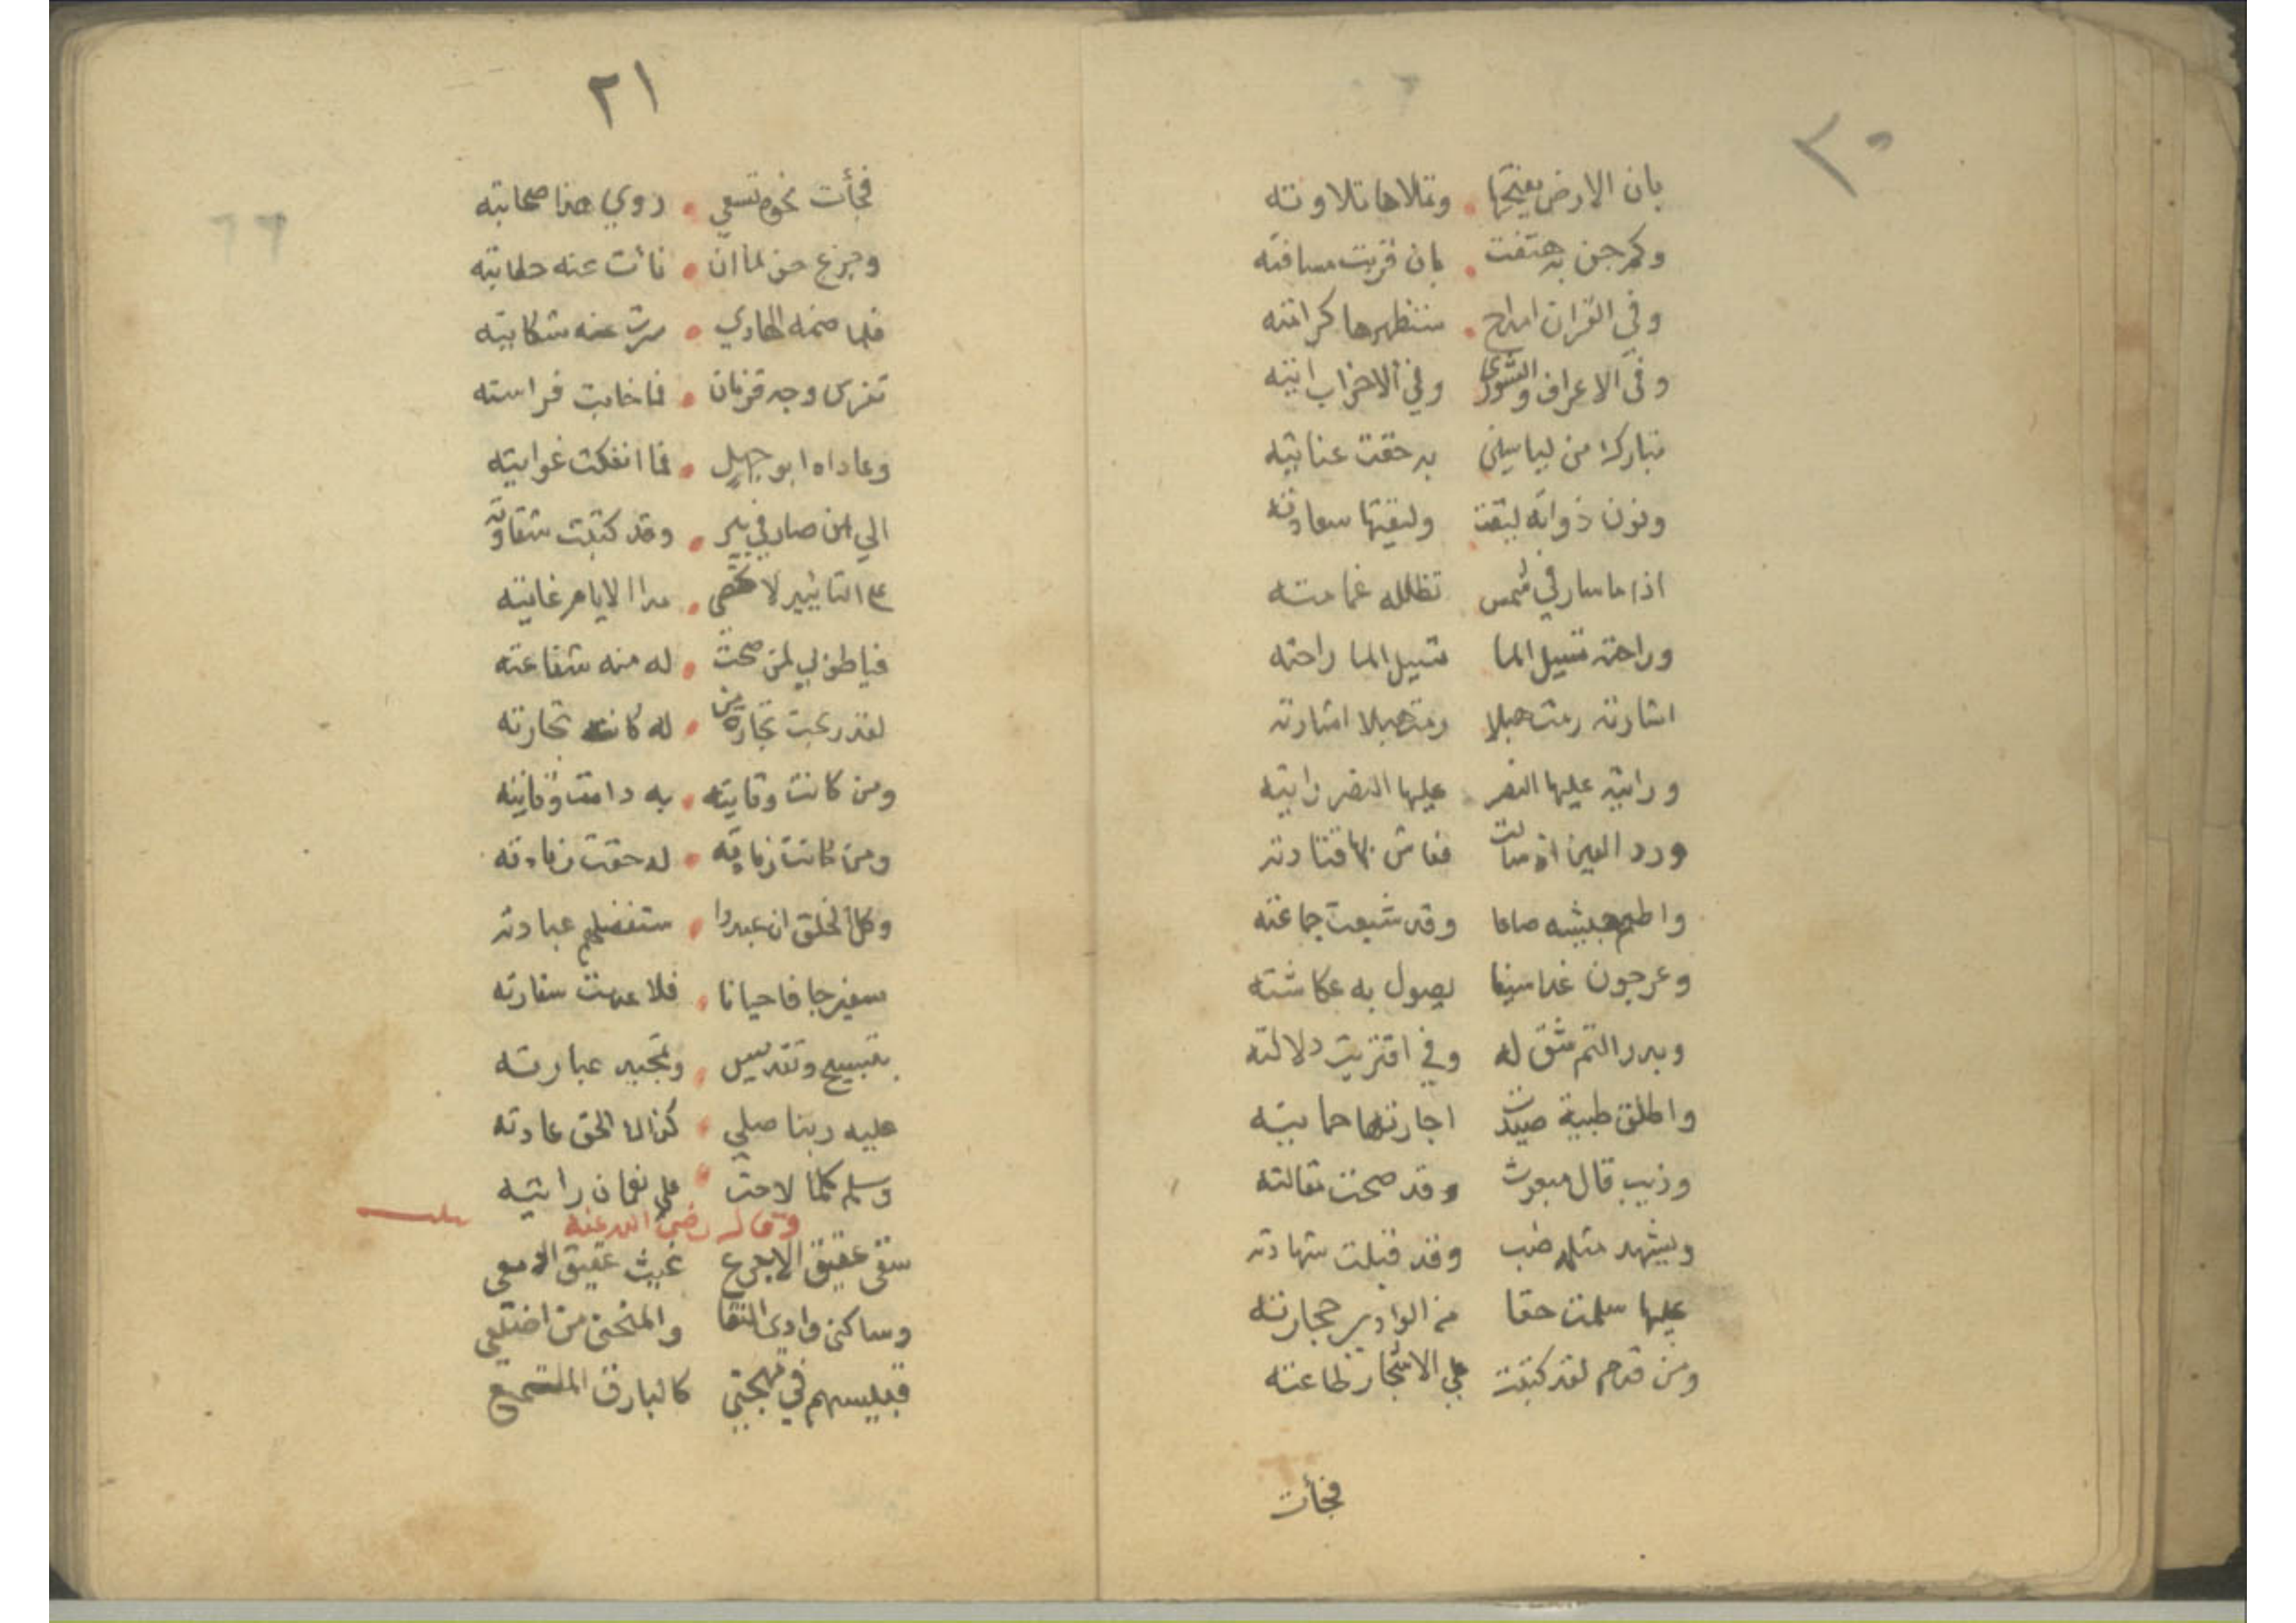 ٣٠
بان الارض يفتحها وتلاها تلاوته
وكم جن به هتفت بان قربت مسافته
وفي القران امداح ستظهرها كرامته
وفي الاعراف والشورى وفي الاحزاب ايته
تبارك من لياسين به حقت عنايته
ونون ذواته لبقت ولبقتها سعادته
اذا ما سار في شمس تظلله غمامته
وراحته تسيل الما تسيل الما راحته
اشارته رمت هبلا رمت هبلا اشارته
ورايته عليها النصر عليها النصر رايته
ورد العين اذ سالت فعاش بها قتادته
واطعم جيشه صاعا وقد شبعت جماعته
وعرجون غدا سيفا يصول به عكاشته
وبدر التم شق له وفي اقتربت دلالته
واطلق ظبية صيدت اجارتها حمايته
وذيب قال مبعوث وقد صحت مقالته
ويشهد مثله ضب وقد قبلت شهادته
عليها سلمت حقا من الوادي حجارته
ومن قدم لقد كتبت علي الاشجار طاعته
فجأت
٢١
٦٦
فجأت نحوه تسعي روي هذا صحابته
وجزع حن لما ان نأت عنه خطابته
فلما ضمه الهادي سرت عنه شكايته
تفرس وجه قزمان فما خابت فراسته
وعاداه ابو جهل فما انفكت غوايته
الي ان صار في بير وقد كتبت شقاوته
التاثير لا تحصي مدا الايام غايته
فيا طوبي لمن صحت له منه شفاعته
لقد ربحت تجارة من له كانت تجارته
ومن كانت وقايته به دامت وقايته
ومن كانت زيارته له حقت زيادته
وكل الخلق ان عبدوا ستفضلهم عبادته
سفير جا فاحيانا فلا عدمت سفارته
بتسبيح وتقديس وتمجيد عبارته
عليه ربنا صلي كذا الحق عادته
وسلم كلما لاحت علي نعمان رايته
وقال رضي الله عنه
سقي عقيق الاجرع غيث عقيق الادمعي
وساكني وادي النقا والمنحني من اضلعي
قبليسهم في مهجتي كالبارق الملتمع